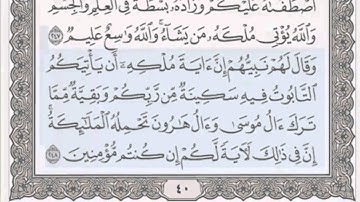 ٱصۡطَفَىٰهُ عَلَيۡكُمۡ وَزَادَهُۥ بَسۡطَةٗ فِي ٱلۡعِلۡمِ وَٱلۡجِسۡمِۖ
وَٱللَّهُ يُؤۡتِي مُلۡكَهُۥ مَن يَشَآءُۚ وَٱللَّهُ وَٰسِعٌ عَلِيمٞ ٢٤٧
وَقَالَ لَهُمۡ نَبِيُّهُمۡ إِنَّ ءَايَةَ مُلۡكِهِۦٓ أَن يَأۡتِيَكُمُ
ٱلتَّابُوتُ فِيهِ سَكِينَةٞ مِّن رَّبِّكُمۡ وَبَقِيَّةٞ مِّمَّا
تَرَكَ ءَالُ مُوسَىٰ وَءَالُ هَٰرُونَ تَحۡمِلُهُ ٱلۡمَلَٰٓئِكَةُۚ
إِنَّ فِي ذَٰلِكَ لَأٓيَةٗ لَّكُمۡ إِن كُنتُم مُّؤۡمِنِينَ ٢٤٨
٤٠